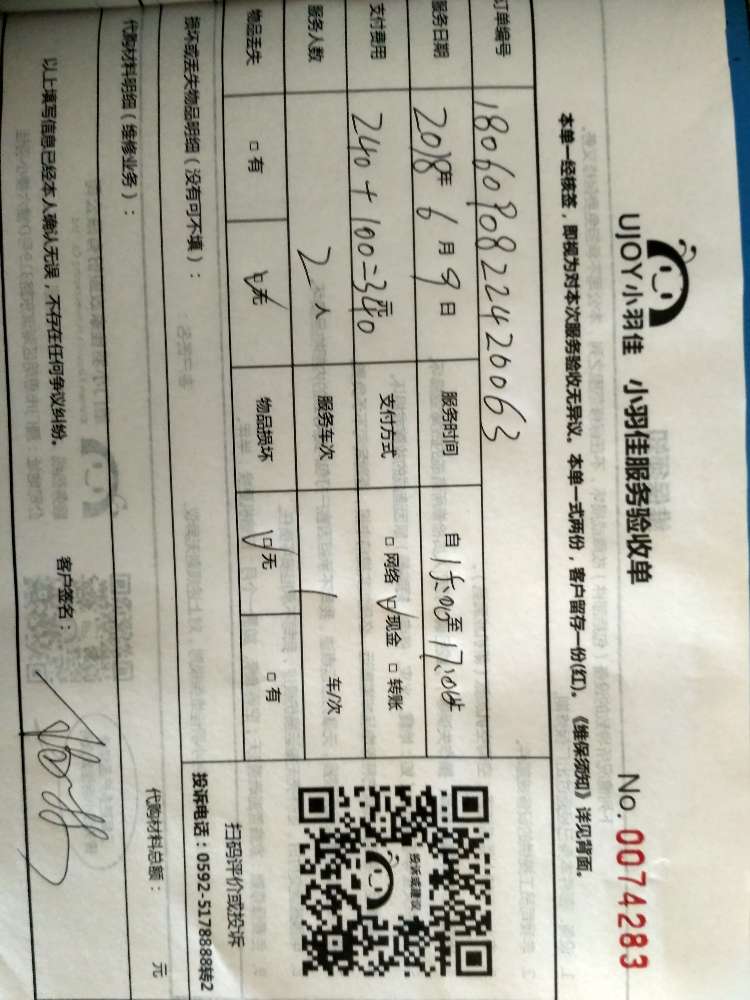 UJOY小羽佳 小羽佳服务验收单 No. 0074283
本单一经核签，即视为对本次服务验收无异议。本单一式两份，客户留存一份(红)。《维保须知》详见背面。
订单编号 180609082242 0063
服务日期 2018年 6 月 9 日 服务时间 自 15:00 至 17:00
支付费用 240+100=340 元 支付方式 □ 网络 ☑ 现金 □ 转账
服务人数 2 人 服务车次 1 车/次
物品丢失 □ 有 ☑ 无 物品损坏 ☑ 无 □ 有
投诉或建议
扫码评价或投诉
投诉电话：0592-5178888转2
损坏或丢失物品明细（没有可不填）：
代购材料明细（维修业务）： 代购材料总额： 元
以上填写信息已经本人确认无误，不存在任何争议纠纷。 客户签名：